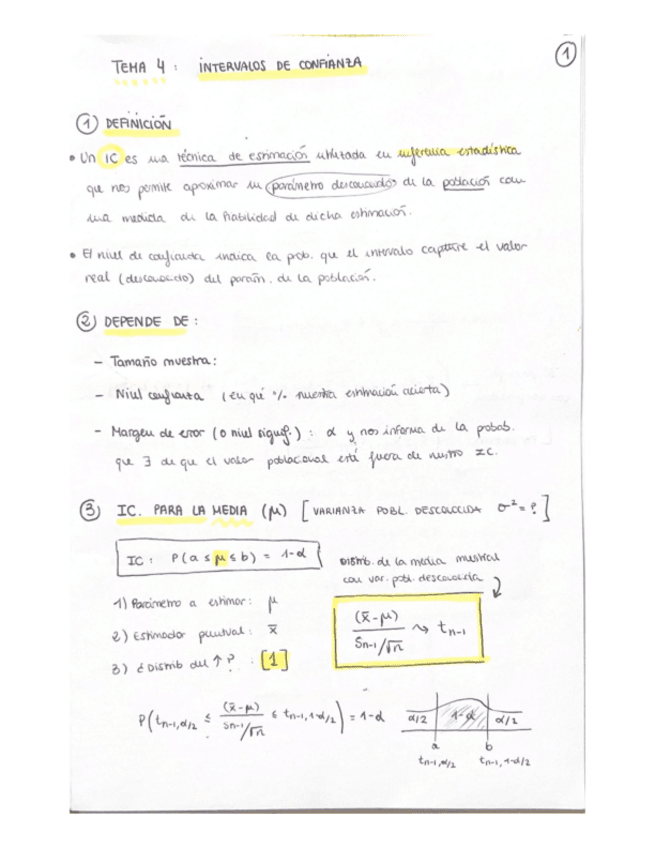 1
TEMA 4 : INTERVALOS DE CONFIANZA
1) DEFINICIÓN
• Un IC es una técnica de estimación utilizada en inferencia estadística
que nos permite aproximar un parámetro desconocido de la población con
una medida de la fiabilidad de dicha estimación.
• El nivel de confianza indica la prob. que el intervalo capture el valor
real (desconocido) del parám. de la población.
2) DEPENDE DE :
- Tamaño muestra:
- Nivel confianza (en qué % nuestra estimación acierta)
- Margen de error (o nivel signif.) : α y nos informa de la probab.
que ∃ de que el valor poblacional esté fuera de nuestro IC.
3) IC. PARA LA MEDIA (μ) [VARIANZA POBL. DESCONOCIDA σ² = ?]
IC : P(a ≤ μ ≤ b) = 1-α
Distrib. de la media muestral
con var. pobl. desconocida
1) Parámetro a estimar: μ
2) Estimador puntual: x̄
3) ¿Distrib del ↑ ? : [1]
(x̄-μ) / Sn-1/√n ⇝ tn-1
P(tn-1,α/2 ≤ (x̄-μ) / Sn-1/√n ≤ tn-1,1-α/2) = 1-α
α/2 1-α α/2
a b
tn-1,α/2 tn-1,1-α/2